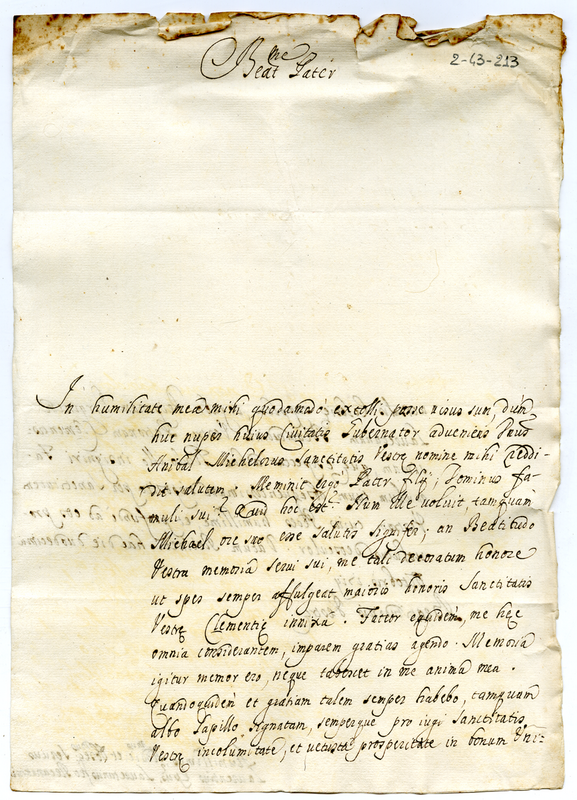 Beat.me Pater
2-43-213
In humilitate mea mihi quodamodo extolli posse visus sum, dum
huc nuper huius Civitatis Gubernator adveniens Dnus
Anibal Michelottus Sanctitatis Vestrę nomine mihi reddi-
dit salutem. Meminit ergo Pater filij, Dominus fa-
muli sui? Quid hoc est? Num ille voluit, tamquam
Michael ore suo esse salutis signifer; an Beatitudo
Vestra memoriâ servi sui, me tali decoratum honore
ut spes semper affulgeat maioris honoris Sanctitatis
Vestrę Clementię innixa. Fateor equidem, me hęc
omnia considerantem, imparem gratias agendo. Memoria
igitur memor ero, neque tabescet in me anima mea.
Quandoquidem et gratiam talem semper habebo, tamquam
albo lapillo signatam, semperque pro iugi Sanctitatis
Vestrę incolumitate, et prosperitate in bonum